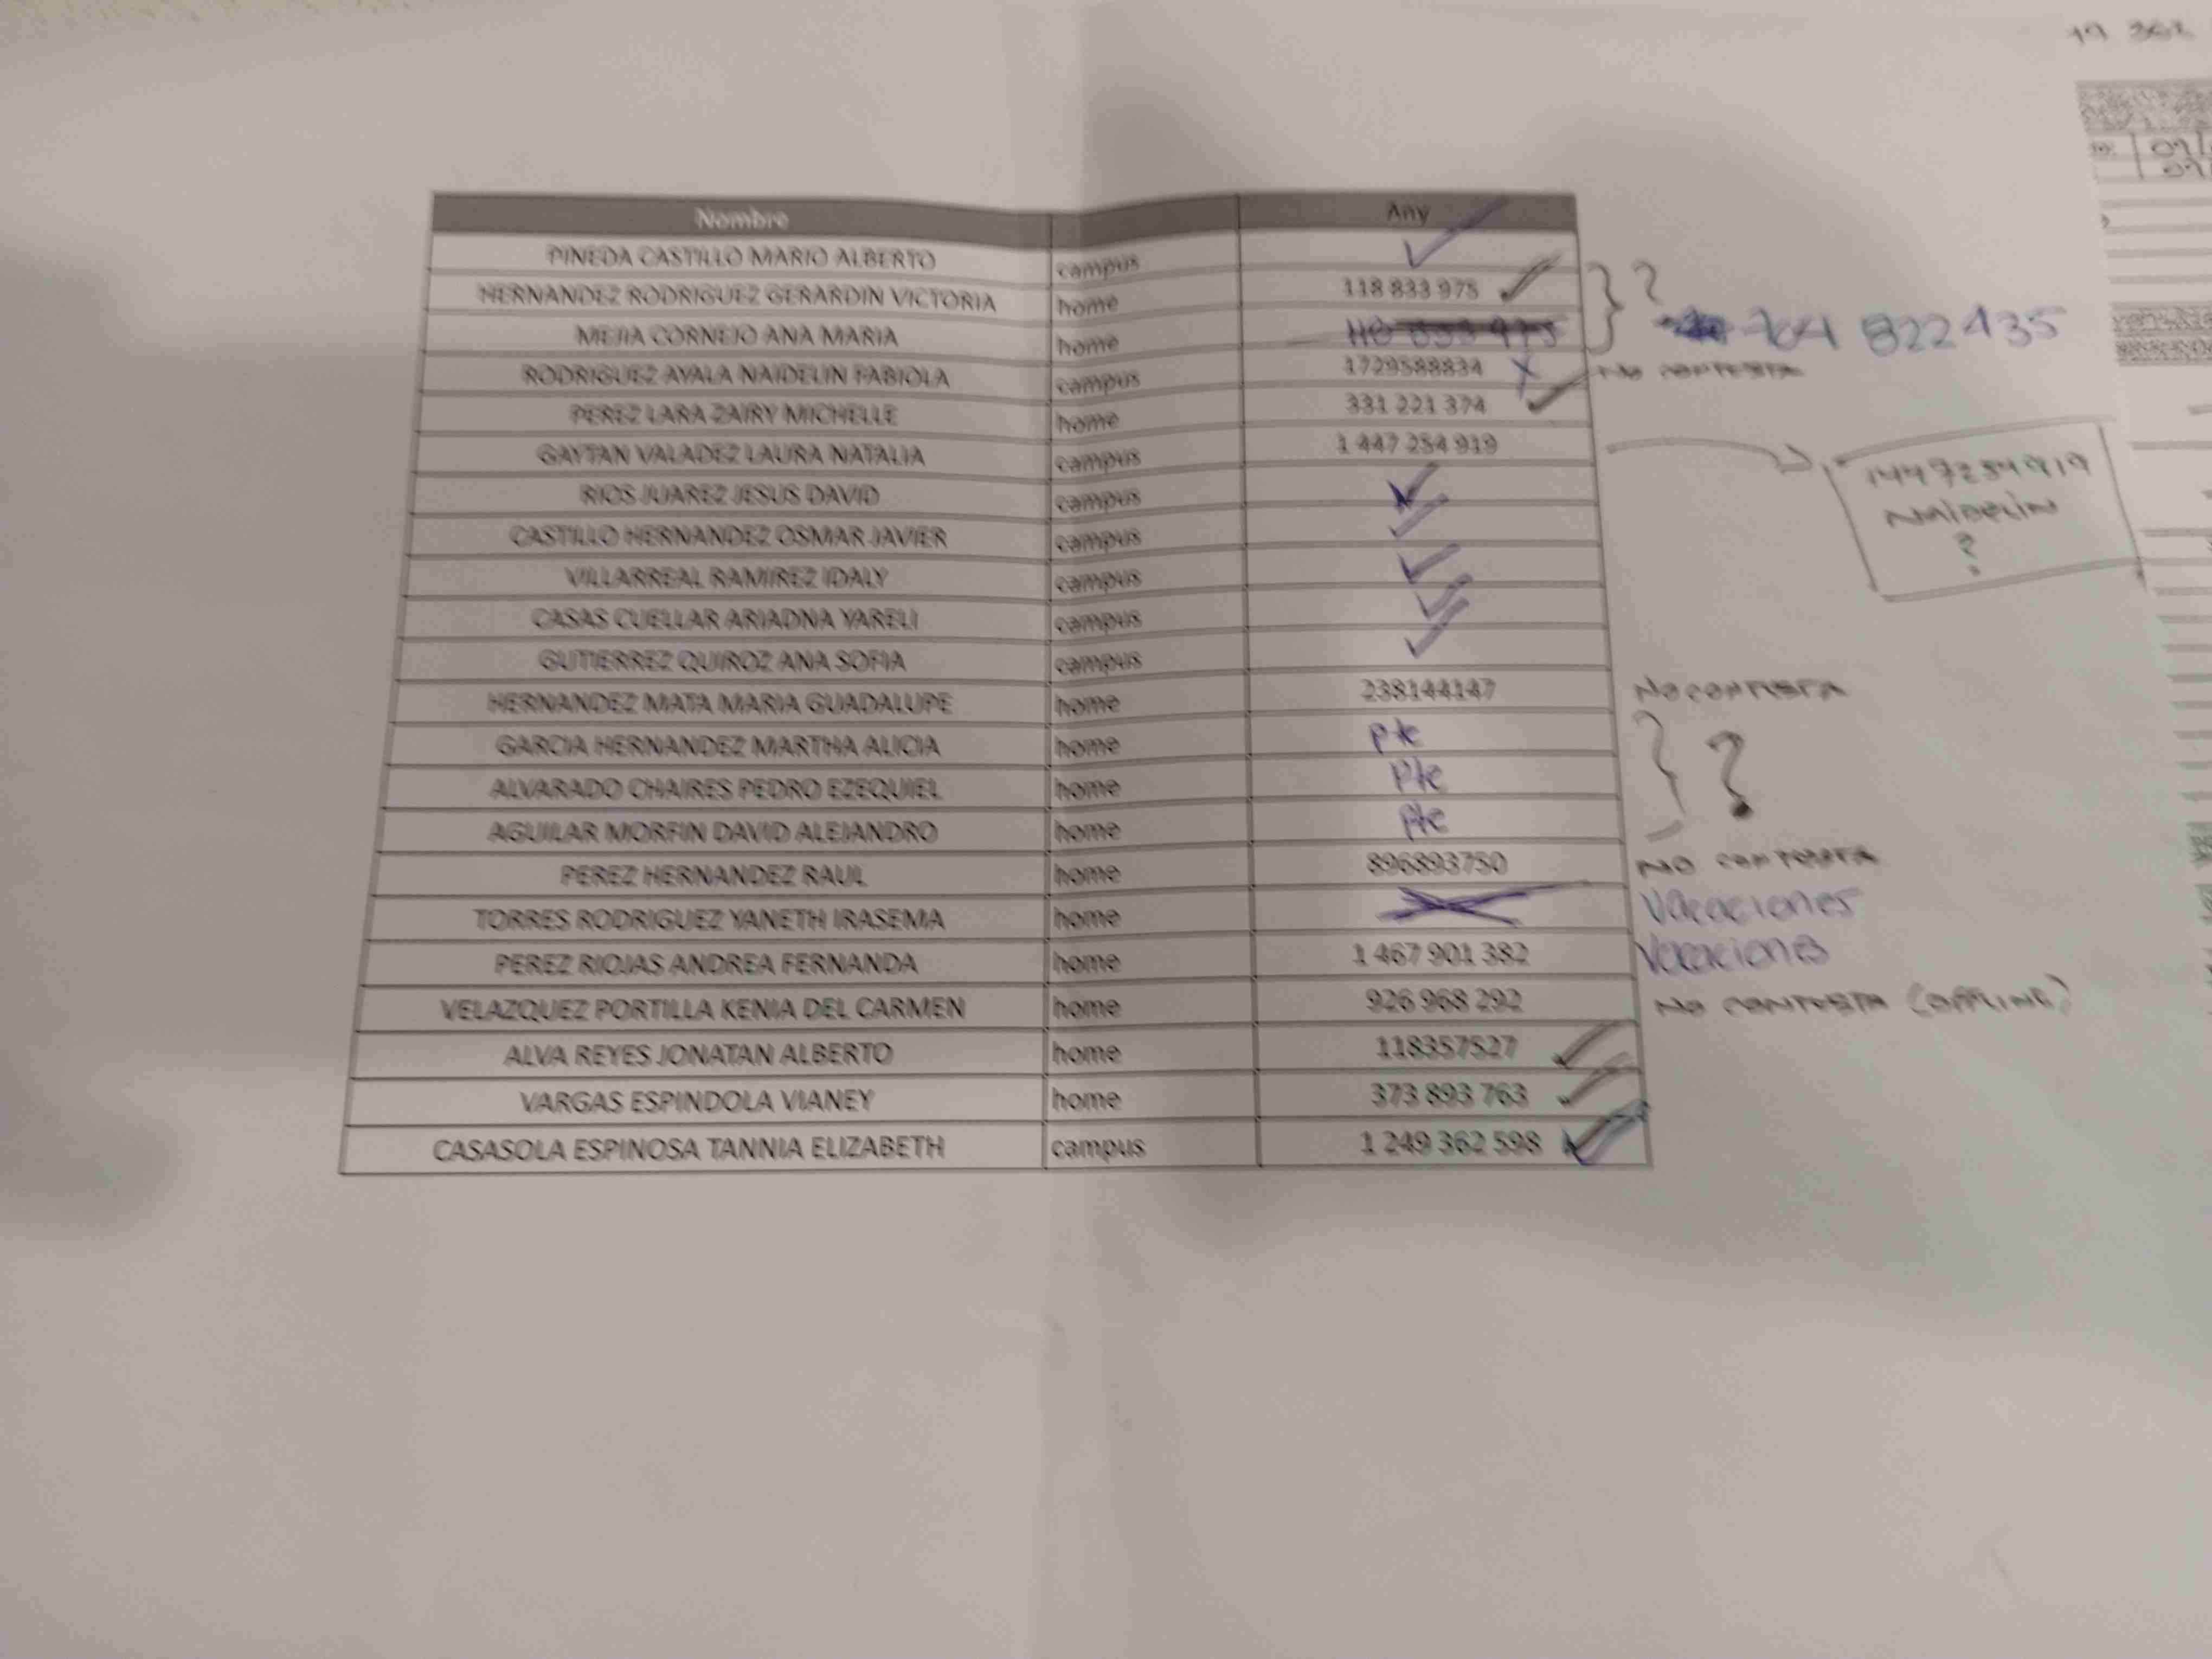 19 362
Nombre Any
PINEDA CASTILLO MARIO ALBERTO campus ✓
HERNANDEZ RODRIGUEZ GERARDIN VICTORIA home 118 833 975 ✓ } ?
MEJIA CORNEJO ANA MARIA home 118 833 975 704 822 435
RODRIGUEZ AYALA NAIDELIN FABIOLA campus 1729588834 X NO CONTESTA
PEREZ LARA ZAIRY MICHELLE home 331 221 374 ✓
GAYTAN VALADEZ LAURA NATALIA campus 1 447 254 919 → 1447254919
NAIDELIN
?
RIOS JUAREZ JESUS DAVID campus ✓
CASTILLO HERNANDEZ OSMAR JAVIER campus ✓
VILLARREAL RAMIREZ IDALY campus ✓
CASAS CUELLAR ARIADNA YARELI campus ✓
GUTIERREZ QUIROZ ANA SOFIA campus ✓
HERNANDEZ MATA MARIA GUADALUPE home 238144147 NO CONTESTA
GARCIA HERNANDEZ MARTHA ALICIA home pte
ALVARADO CHAIRES PEDRO EZEQUIEL home Pte } ?
AGUILAR MORFIN DAVID ALEJANDRO home pte
PEREZ HERNANDEZ RAUL home 896893750 NO CONTESTA
TORRES RODRIGUEZ YANETH IRASEMA home Vacaciones
PEREZ RIOJAS ANDREA FERNANDA home 1 467 901 382 Vacaciones
VELAZQUEZ PORTILLA KENIA DEL CARMEN home 926 968 292 NO CONTESTA (OFFLINE)
ALVA REYES JONATAN ALBERTO home 118357527 ✓
VARGAS ESPINDOLA VIANEY home 373 893 763 ✓
CASASOLA ESPINOSA TANNIA ELIZABETH campus 1 249 362 598 ✓